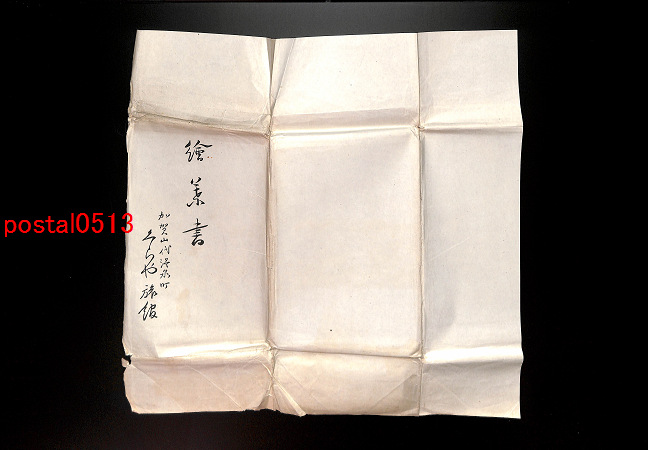 繪葉書
加賀山代温泉町
くらや旅館
postal0513